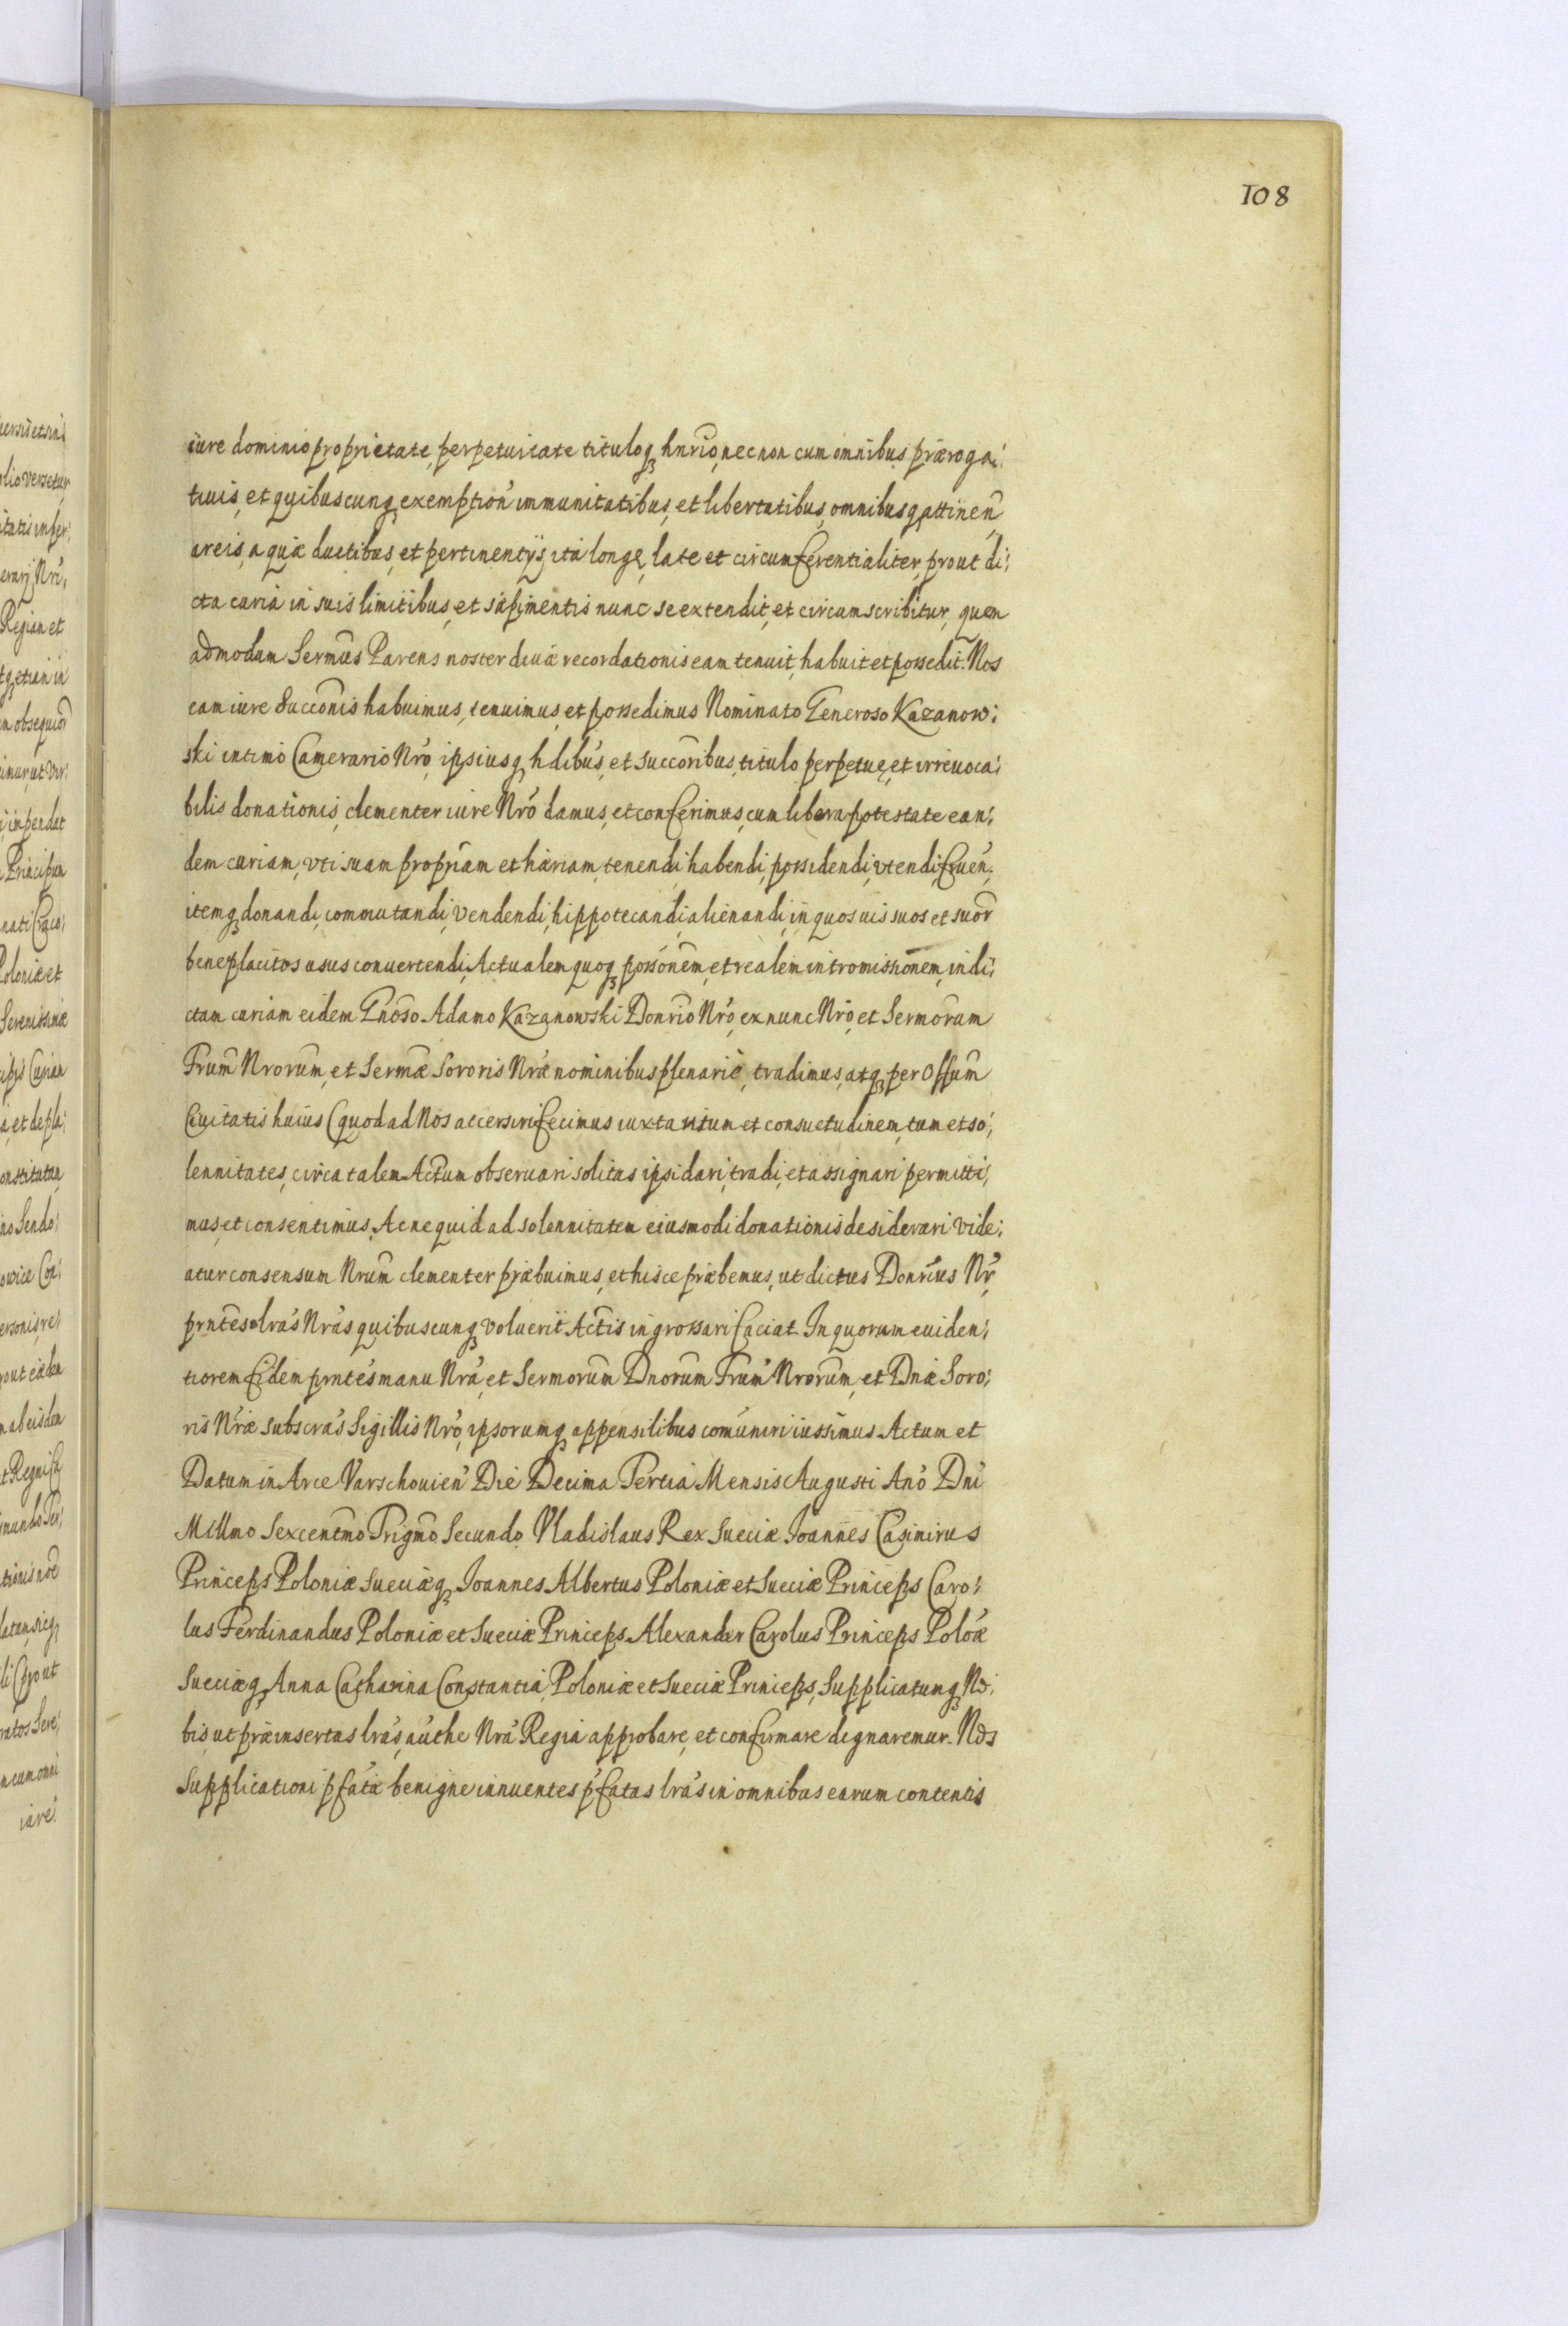 108
iure dominio proprietate, perpetuitate tituloq, hnrio, necnon cum omnibus præroga:
tiuis, et quibuscunq, exemption̄ immunitatibus, et libertatibus, omnibusq attinen̄
areis, aquæ ductibus, et pertinentijs ita longe, late et circumferentialiter, prout di:
cta curia in suis limitibus, et sæpimentis nunc se extendit, et circumscribitur, quem
admodum Sermus Parens noster diuæ recordationis eam tenuit, habuit et possedit. Nos
eam iure Succonis habuimus, tenuimus, et possedimus Nominato Generoso Kazanow:
ski intimo Camerario Nro, ipsiusq hdibus, et succoribus, titulo perpetuę, et irreuoca:
bilis donationis, clementer iure Nro damus, et conferimus, cum libera potestate ean:
dem curiam, vti suam propriam et hæriam, tenendi, habendi, possidendi, vtendi, fruen:
itemq donandi, commutandi, vendendi, hippotecandi, alienandi, in quosuis suos et suor
beneplacitos usus conuertendi, Actualem quoq possonem, et realem intromissionem, in di:
ctam curiam eidem Gnoso Adamo Kazanowski Donrio Nro, ex nunc Nro, et Sermorum
Frum Nrorum, et Sermæ Sororis Nræ nominibus plenarie, tradimus, atq per Offum
Ciuitatis huius (quod ad Nos accersiri fecimus iuxta ritum et consuetudinem, tum et so:
lennitates, circa talem Actum obseruari solitas ipsi dari, tradi, et assignari permitti:
mus, et consentimus. Ac ne quid ad solennitatem eiusmodi donationis desiderari vide:
atur consensum Nrum clementer præbuimus, et hisce præbemus, ut dictus Donrius Nr,
prntes lras Nras quibuscunq voluerit Actis ingrossari faciat. In quorum euiden:
tiorem fidem prntes manu Nra, et Sermorum Dnorum Frum Nrorum, et Dnæ Soro:
ris Nræ subscras Sigillis Nro, ipsorumq appensilibus comuniri iussimus. Actum et
Datum in Arce Varschouien̄ Die Decima Tertia Mensis Augusti Ano Dni
Millmo Sexcentmo Trigmo Secundo. Vladislaus Rex Sueciæ Ioannes Casimirus
Princeps Poloniæ Sueciæq, Ioannes Albertus Poloniæ et Sueciæ Princeps Caro:
lus Ferdinandus Poloniæ et Sueciæ Princeps Alexander Carolus Princeps Poloæ
Sueciæq, Anna Catharina Constantia, Poloniæ et Sueciæ Princeps, Supplicatumq No:
bis, ut præinsertas lras, authe Nra Regia approbare, et confirmare dignaremur. Nos
Supplicationi pfatæ benigne innuentes pfatas lras in omnibus earum contentis